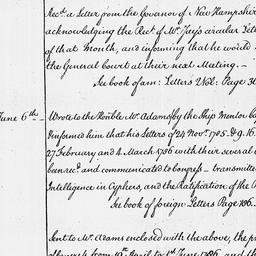 Recd. a Letter from the Governor of New Hampshire
acknowledging the Rect. of Mr. Jay's circular Lette
of that Month, and informing that he would
the General Court at their next Meeting.—
See book of am: Letters Vol: Page 3
June 6th—
Wrote to the Honble. Mr. Adams by the Ship Mentor
informed him that his Letters of 24 Novr. 1785. & 9. 16.
27 February and 4 March 1786 with their several
been recd. and communicated to Congress— transmitte
Intelligence in Cyphers, and the Ratification of the
See book of foreign Letters Page 186.
Sent to Mr. Adams enclosed with the above, the
of from 10th April to 1st June 1786 and th